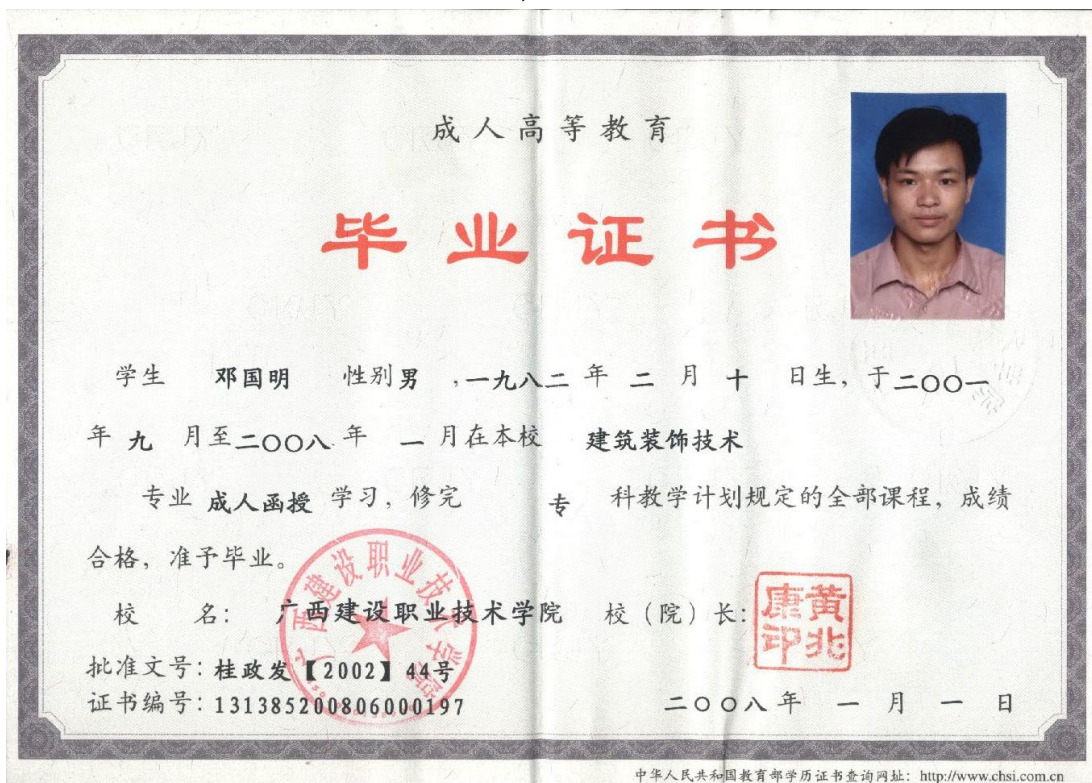 成人高等教育
毕业证书
学生 邓国明 性别 男 ,一九八二 年 二 月 十 日生, 于二〇〇一
年 九 月至二〇〇八 年 一 月在本校 建筑装饰技术
专业 成人函授 学习, 修完 专 科教学计划规定的全部课程, 成绩
合格, 准予毕业。
校 名: 广西建设职业技术学院 校(院)长: 黄北康印
广西建设职业技术学院
批准文号: 桂政发【2002】44号
证书编号: 131385200806000197
二〇〇八 年 一 月 一 日
中华人民共和国教育部学历证书查询网址: http://www.chsi.com.cn